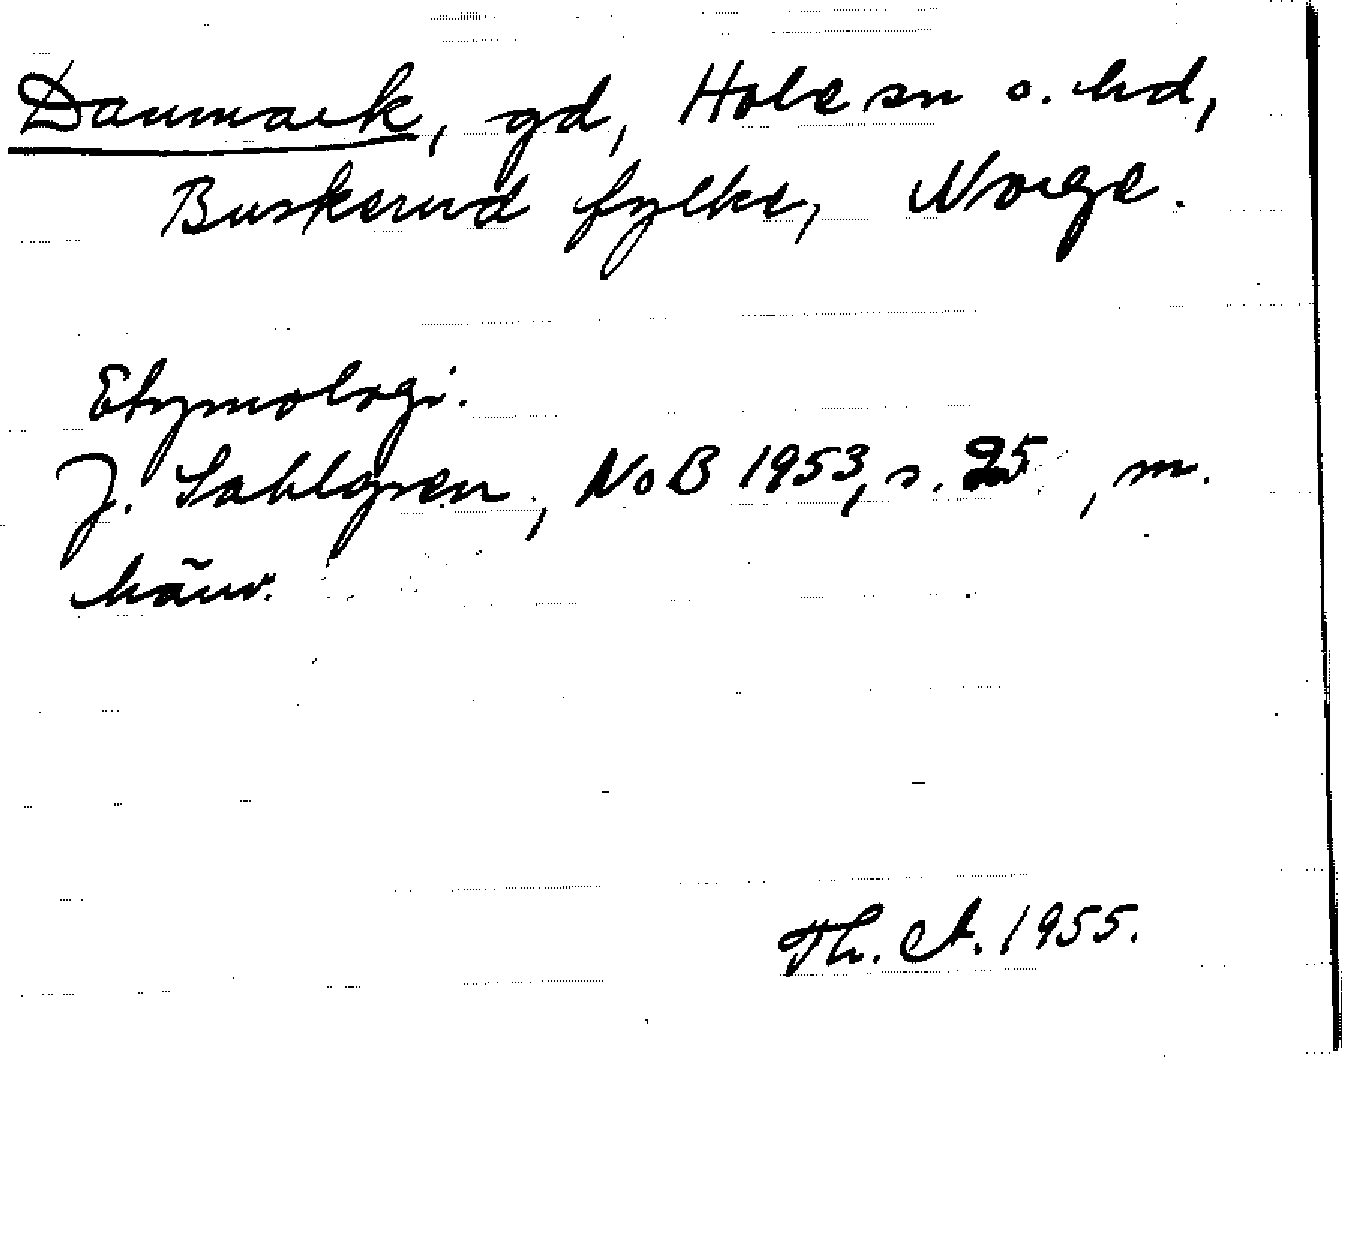 Danmark, gd, Hole sn o. hd,
Buskerud fylke, Norge.
Etymologi.
J. Sahlgren, NoB 1953, s. 25, m.
hänv.
Th. A. 1955.